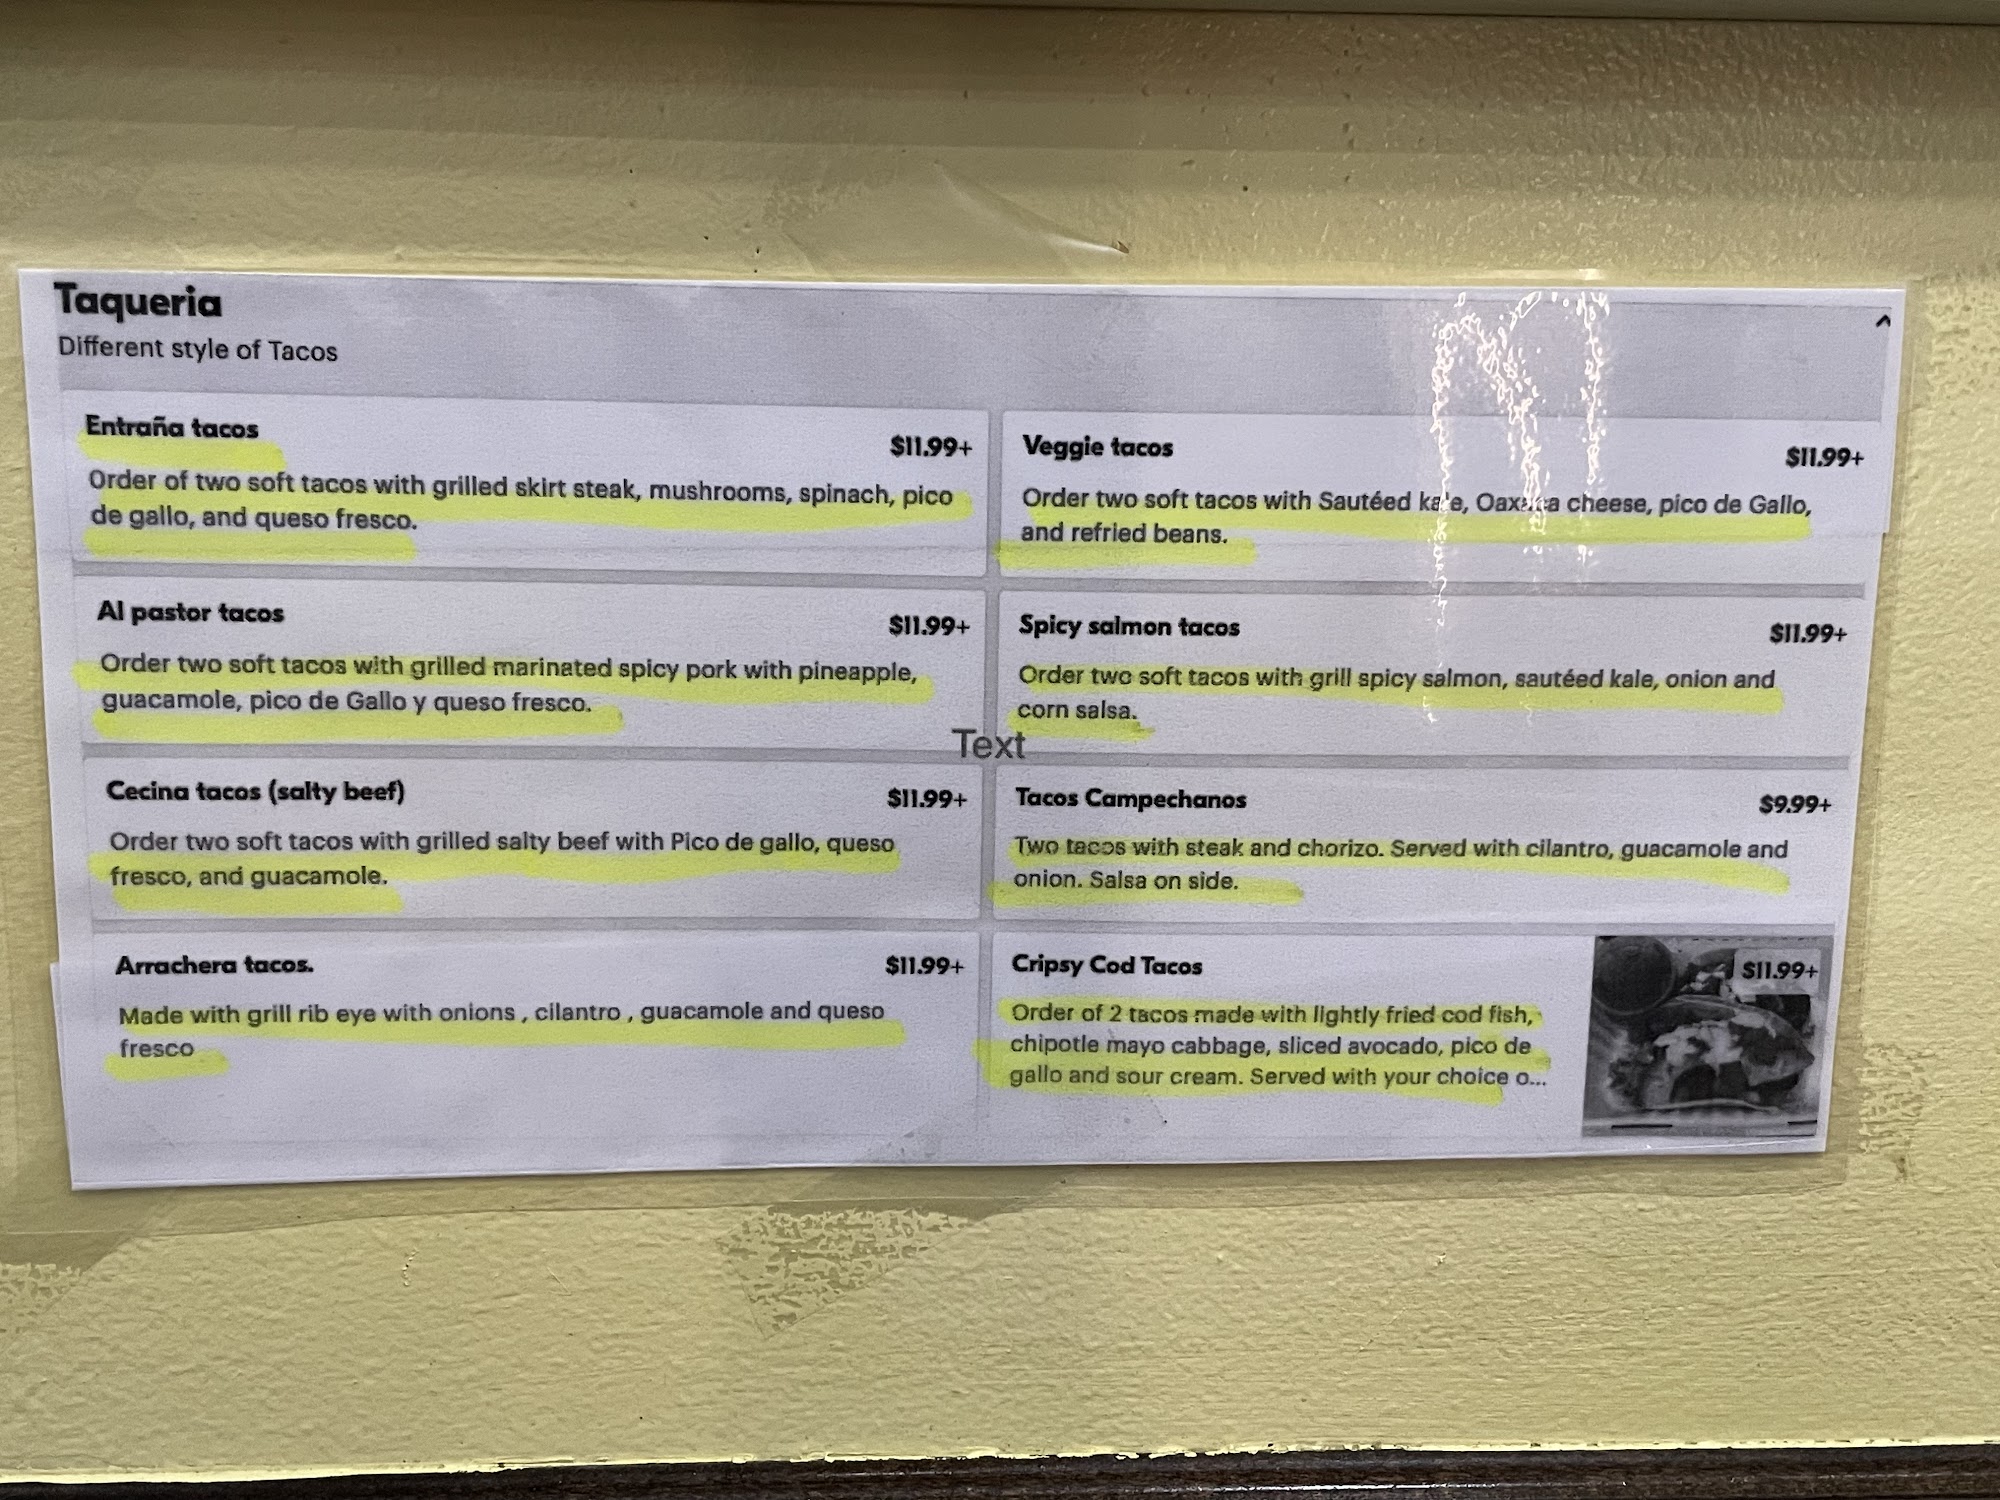 Taqueria
Different style of Tacos
Entraña tacos
$11.99+
Order of two soft tacos with grilled skirt steak, mushrooms, spinach, pico
de gallo, and queso fresco.
Veggie tacos
$11.99+
Order two soft tacos with Sautéed kale, Oaxaca cheese, pico de Gallo,
and refried beans.
Al pastor tacos
$11.99+
Order two soft tacos with grilled marinated spicy pork with pineapple,
guacamole, pico de Gallo y queso fresco.
Spicy salmon tacos
$11.99+
Order two soft tacos with grill spicy salmon, sautéed kale, onion and
corn salsa.
Text
Cecina tacos (salty beef)
$11.99+
Order two soft tacos with grilled salty beef with Pico de gallo, queso
fresco, and guacamole.
Tacos Campechanos
$9.99+
Two tacos with steak and chorizo. Served with cilantro, guacamole and
onion. Salsa on side.
Arrachera tacos.
$11.99+
Made with grill rib eye with onions , cilantro , guacamole and queso
fresco
Cripsy Cod Tacos
$11.99+
Order of 2 tacos made with lightly fried cod fish,
chipotle mayo cabbage, sliced avocado, pico de
gallo and sour cream. Served with your choice o...